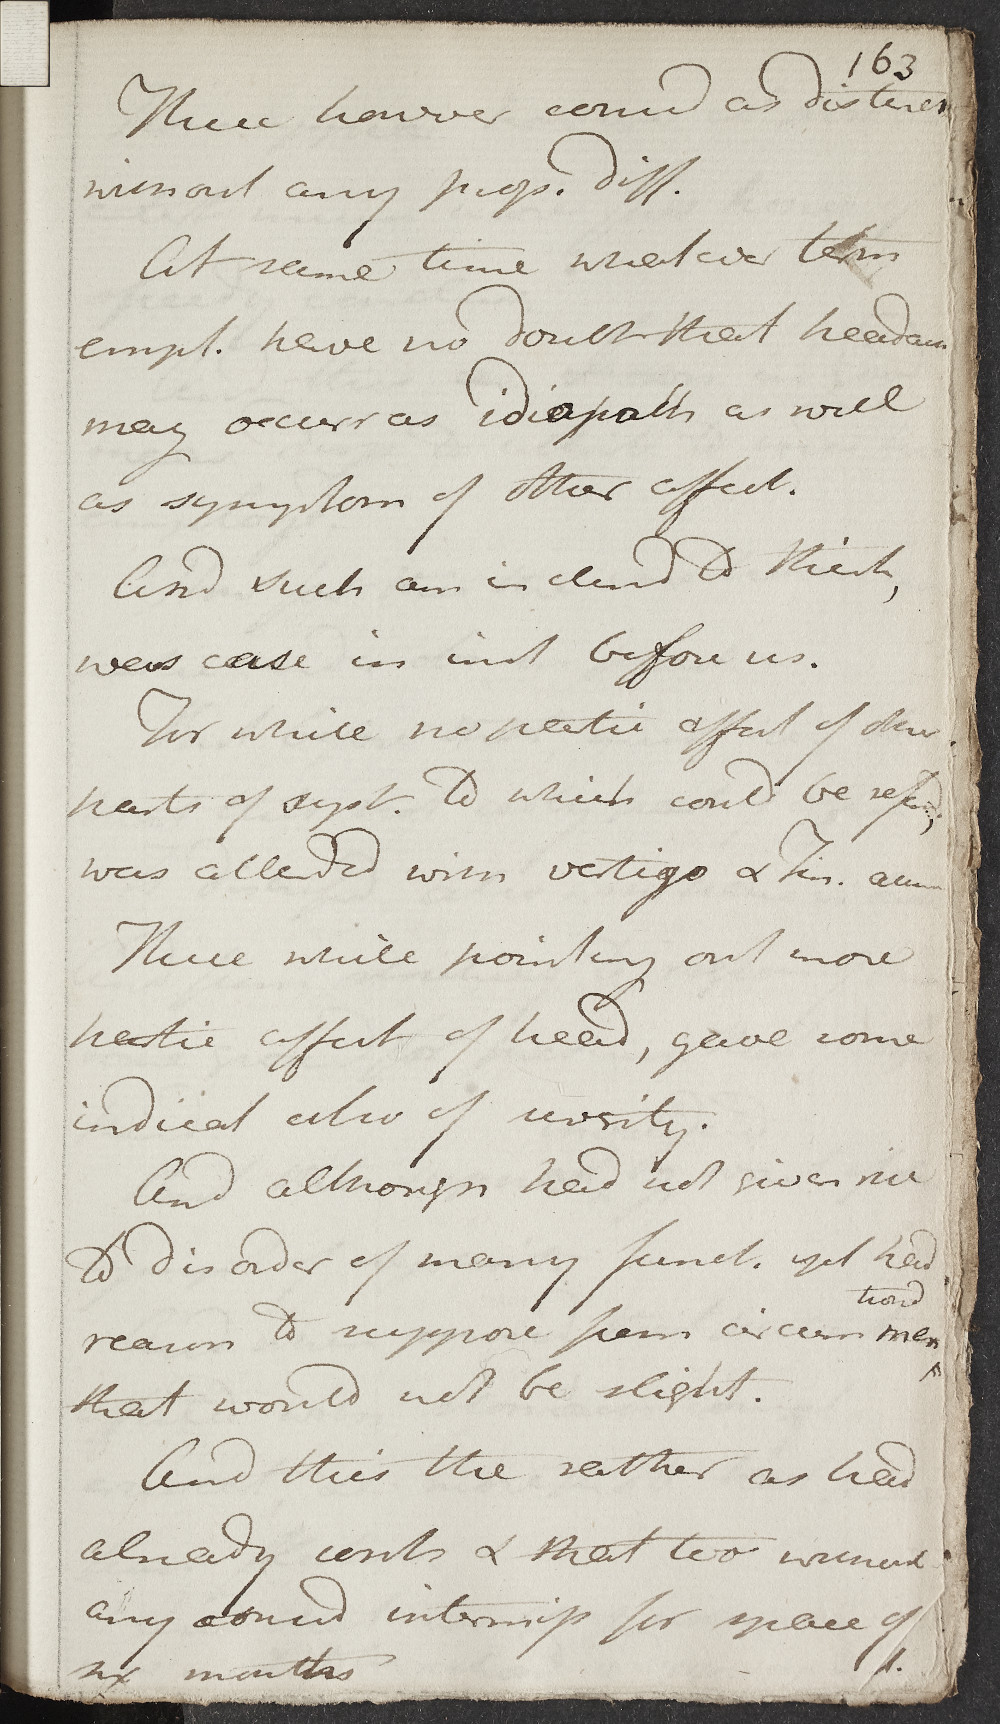 163
These however consid as distinct
without any prop. diff.
At same time whatever term
empl. have no doubt that headach
may occurr as idiopath as well
as symptom of other affect.
And such am inclind to think,
was case in inst before us.
For while no partic affect of other
parts of syst. to which could be referd,
was attended with vertigo & Tin. aurium
These while pointing out more
partic affect of head, gave some
indicat also of
And although had not given rise
to disorder of many funct. yet had
tiond
reason to suppose from circum men
that would not be slight.
And this the rather as had
already conts & that too without
any consid intermiss for space of
six months